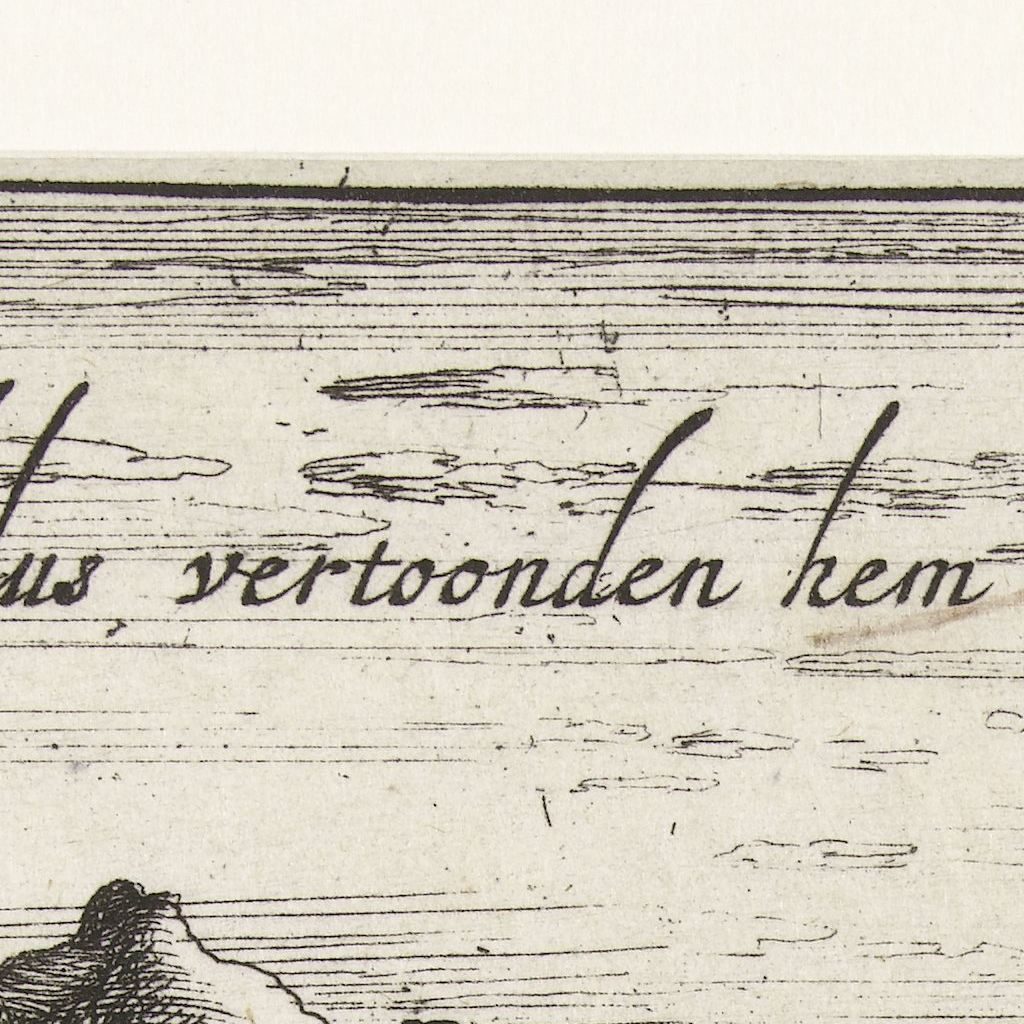 dus vertoonden hem